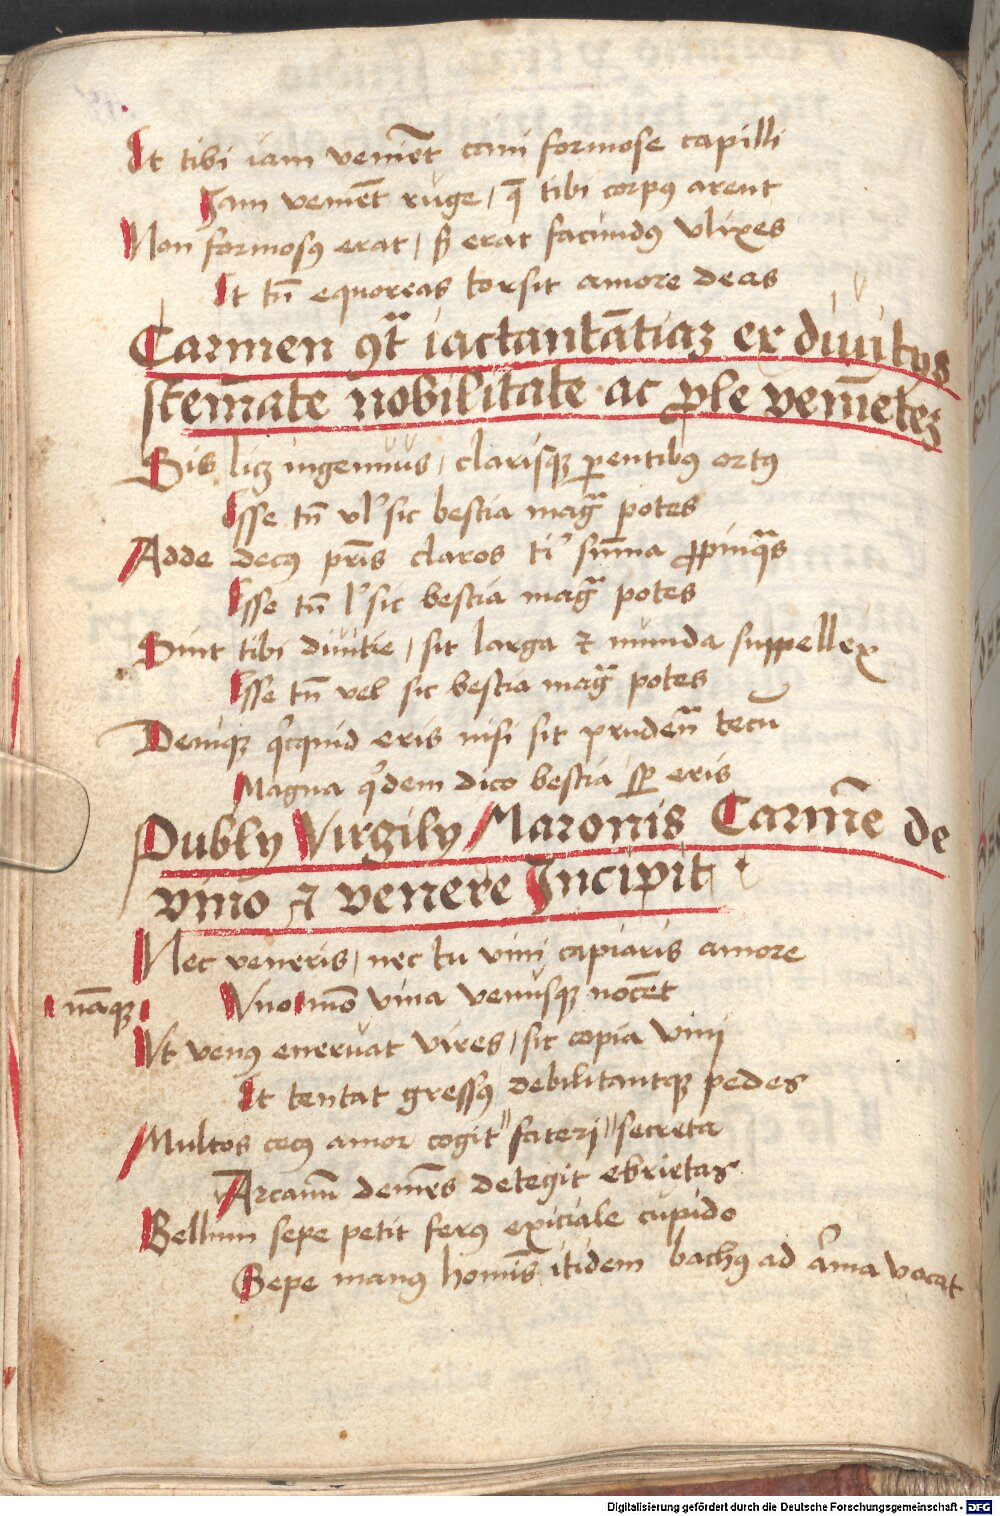 Et tibi iam venie̅t cani formose capilli
Iam venie̅t ruge / q̅ tibi corpꝰ arent
Non formosꝰ erat / s̅ erat facundꝰ vlixes
Et tn̅ equoreas torsit amore deas
Carmen ꝯt̅ iactanta̅tiaꝫ ex diuitijs
ste̅mate nobilitate ac ꝓle venie̅teꝫ
Sis licꝫ ingenuus / clarisqꝫ ꝑentibꝰ ortꝰ
Esse tn̅ vl' sic bestia mag̅ potes
Adde decꝰ pr̅is claros ti' su̅ma ꝓpinq̅s
Esse tn̅ l' sic bestia mag̅ potes
Sint tibi diuitie / sit larga ⁊ munda suppellex
Esse tn̅ vel sic bestia mag̅ potes
Deniqꝫ qͥcquid eris nisi sit pruden̅ tecu̅
Magna qͥdem dico bestia sꝑ eris
Publij Virgilij Maronis Carme̅ de
vino ⁊ venere Incipit
Nec veneris / nec tu vini capiaris amore
namqꝫ Vno mo̅ vina venusqꝫ noce̅t
Vt venꝰ eneruat vires / sic copia vini
Et tentat gressꝰ debilitantqꝫ pedes
Multos cecꝰ amor cogit" fateri" secreta
Arcanu̅ deme̅s detegit ebrietas
Bellum sepe petit ferꝰ exiciale cupido
Sepe manꝰ homi̅s itidem bachꝰ ad arma vocat
Digitalisierung gefördert durch die Deutsche Forschungsgemeinschaft - DFG